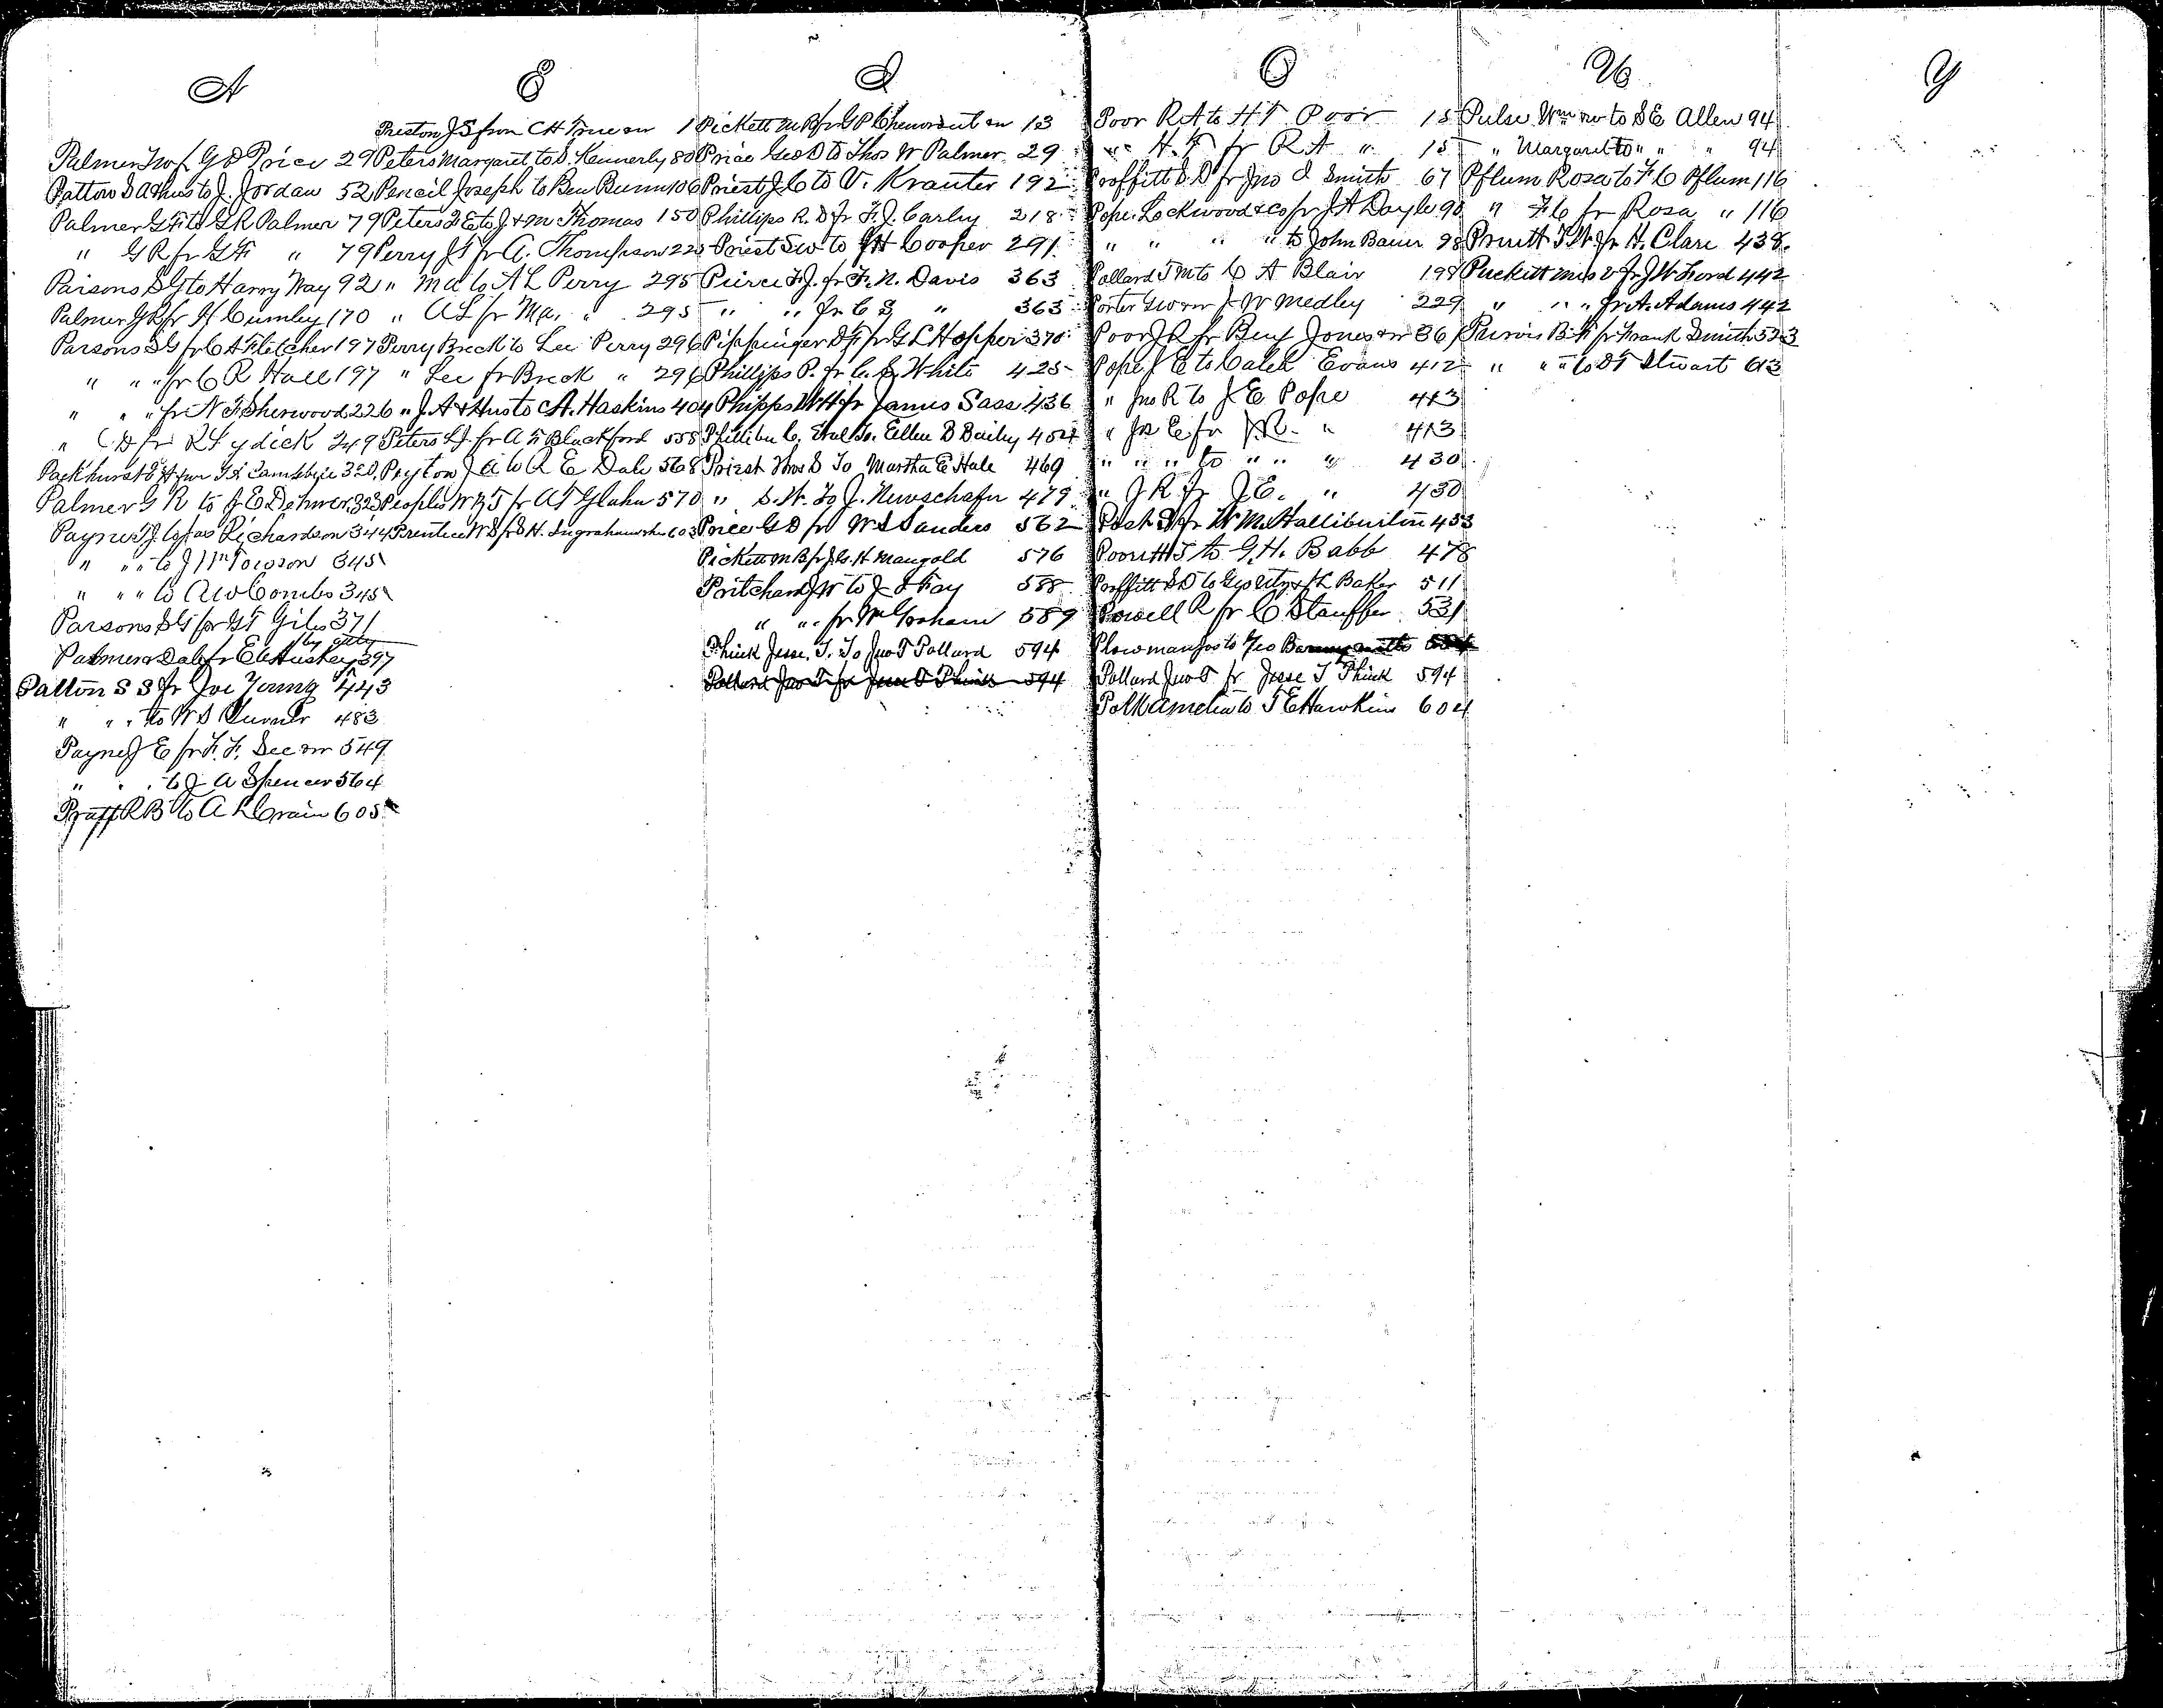 A
Palmer Two f G D Price 29
Patton S A & hus to J. Jordan 52
Palmer G F to G R Palmer 79
" G R fr G F " 79
Parsons S G to Harry Way 92
Palmer G R fr H Cumley 170
Parsons S G fr C A Fletcher 197
" " " fr C R Hall 197
" " " fr N F Sherwood 226
" fr R Lydick 249
Packhurst 320
Palmer G R to J E Dehmer 323
Payne J to Jas Richardson 344
" " " to J Wm Towson 345
" " " to A W Combs 345
Parsons S G for G T Giles 371
Palmer fr E C Huskey 397
Patton S S fr Joe Young 443
" " " to W S Turner 483
Payne J E fr F. F. Dec or 549
" " to J A Spencer 564
Pratt R B to A L Crain 605
E
Preston J S from C H True on 1
Peters Margaret to S. Kennerly 80
Pencil Joseph to Ben Bunn 106
Peters to J & M Thomas 150
Perry J T fr A. Thompson 22
" Ma to A L Perry 295
" A L fr Ma. " 295
Perry Breck to Lee Perry 296
" Lee fr Breck " 296
" J. A & Hus to A. Haskins 404
Peters L J. fr A F Blackford 555
Peyton J A to R E Dale 568
Peoples W fr A T Glahn 570
Prentice W D fr D H. Ingraham 603
I
Pickett M B fr G P Chenowut on 13
Price Geo D to Thos W Palmer 29
Priest J C to V. Kranter 192
Phillips R. D fr F. J. Carley 218
Priest Geo to J H Cooper 291
Pierce F J. fr F. N. Davis 363
" " fr C E " 363
Pippinger D F fr G L Hopper 370
Phillips P. fr C. E. White 425
Phipps W H fr James Sass 436
Phillibu C. to Ellen D Baily 454
Priest Thos D To Martha E Hale 469
" S. W. To J. Newschafer 479
Price G D fr W S Sanders 562
Pickett M B fr J. G. H Mangold 576
Pritchard J W to J S Fay 588
" " fr M Graham 589
Phink Jesse. T. To Jno T Pollard 594
Pollard Jno T fr Jesse T Phink 594
O
Poor R A to H F Poor 15
" H. F fr R A " 15
Proffitt S D fr Jno A Smith 67
Pope, Lockwood & Co fr J A Dayle 98
" " " " to John Bauer 98
Pollard T M to C A Blair 198
Porter Geo fr J W Medley 229
Poor J R fr Benj Jones 36
Pope J E to Caleb Evans 412
" Jno R to J E Pope 413
" Jno E fr J R. " 413
" " " to " " " 430
" J R fr J E. " 430
Post fr W M. Halliburton 453
Poor H F to G. H. Babb 478
Proffitt S D to Baker 511
Powell R fr C Stauffer 531
Plowman Jos to Geo
Pollard Jno T fr Jesse T Phink 594
Polk Amelia to T E Hawkins 604
U
Pulse Wm to S E Allen 94
" Margaret to " " " 94
Pflum Rosa to F C Pflum 116
" F C fr Rosa " 116
Pruitt fr H. Clare 438
Puckitt Miss V fr J W Ford 442
" " " fr A. Adams 442
Purvis B F fr Frank Smith 533
" " " to D T Stuart 613
Y